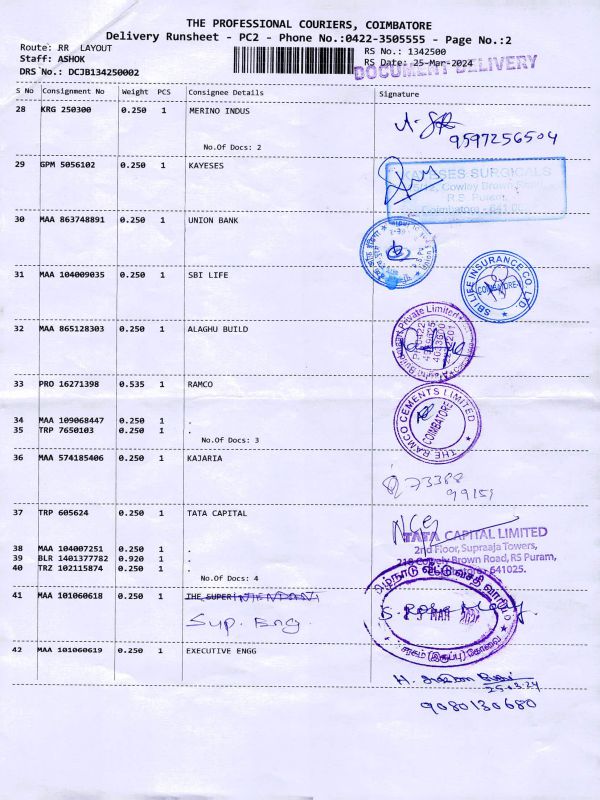 THE PROFESSIONAL COURIERS, COIMBATORE
Delivery Runsheet - PC2 - Phone No.:0422-3505555 - Page No.:2
Route: RR LAYOUT
RS No.: 1342500
Staff: ASHOK
RS Date: 25-Mar-2024
DOCUMENT DELIVERY
DRS No.: DCJB134250002
S No Consignment No Weight PCS Consignee Details Signature
28 KRG 250300 0.250 1 MERINO INDUS
9597256504
No.Of Docs: 2
29 GPM 5056102 0.250 1 KAYESES
KAYESES SURGICALS
Cowley Brown
R.S. Puram,
Coimbatore - 641
30 MAA 863748891 0.250 1 UNION BANK
31 MAA 104009035 0.250 1 SBI LIFE
SBI LIFE INSURANCE CO. LTD.
COIMBATORE
32 MAA 865128303 0.250 1 ALAGHU BUILD
Private Limited
33 PRO 16271398 0.535 1 RAMCO
THE RAMCO CEMENTS LIMITED
COIMBATORE
34 MAA 109068447 0.250 1 .
35 TRP 7650103 0.250 1 .
No.Of Docs: 3
36 MAA 574185406 0.250 1 KAJARIA
73388
99151
37 TRP 605624 0.250 1 TATA CAPITAL
TATA CAPITAL LIMITED
2nd Floor, Supraaja Towers,
Cowely Brown Road, RS Puram,
641025.
38 MAA 104007251 0.250 1 .
39 BLR 1401377782 0.920 1 .
40 TRZ 102115874 0.250 1 .
No.Of Docs: 4
41 MAA 101060618 0.250 1 THE SUPERINTENDANT
தமிழ்நாடு வீட்டு வசதி வாரியம்
MAR 202
Sup. Eng.
42 MAA 101060619 0.250 1 EXECUTIVE ENGG
25.03.24
9080130680